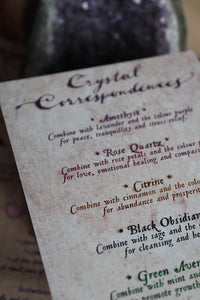 Crystal
Correspondences
• Amethyst •
Combine with lavender and the colour purple
for peace, tranquility and stress relief.
• Rose Quartz •
Combine with rose petals and the colour p
for love, emotional healing and compass
• Citrine •
Combine with cinnamon and the colo
for abundance and prosper
• Black Obsidian
Combine with sage and the
for cleansing and
• Green Aven
Combine with mint and
promote growth